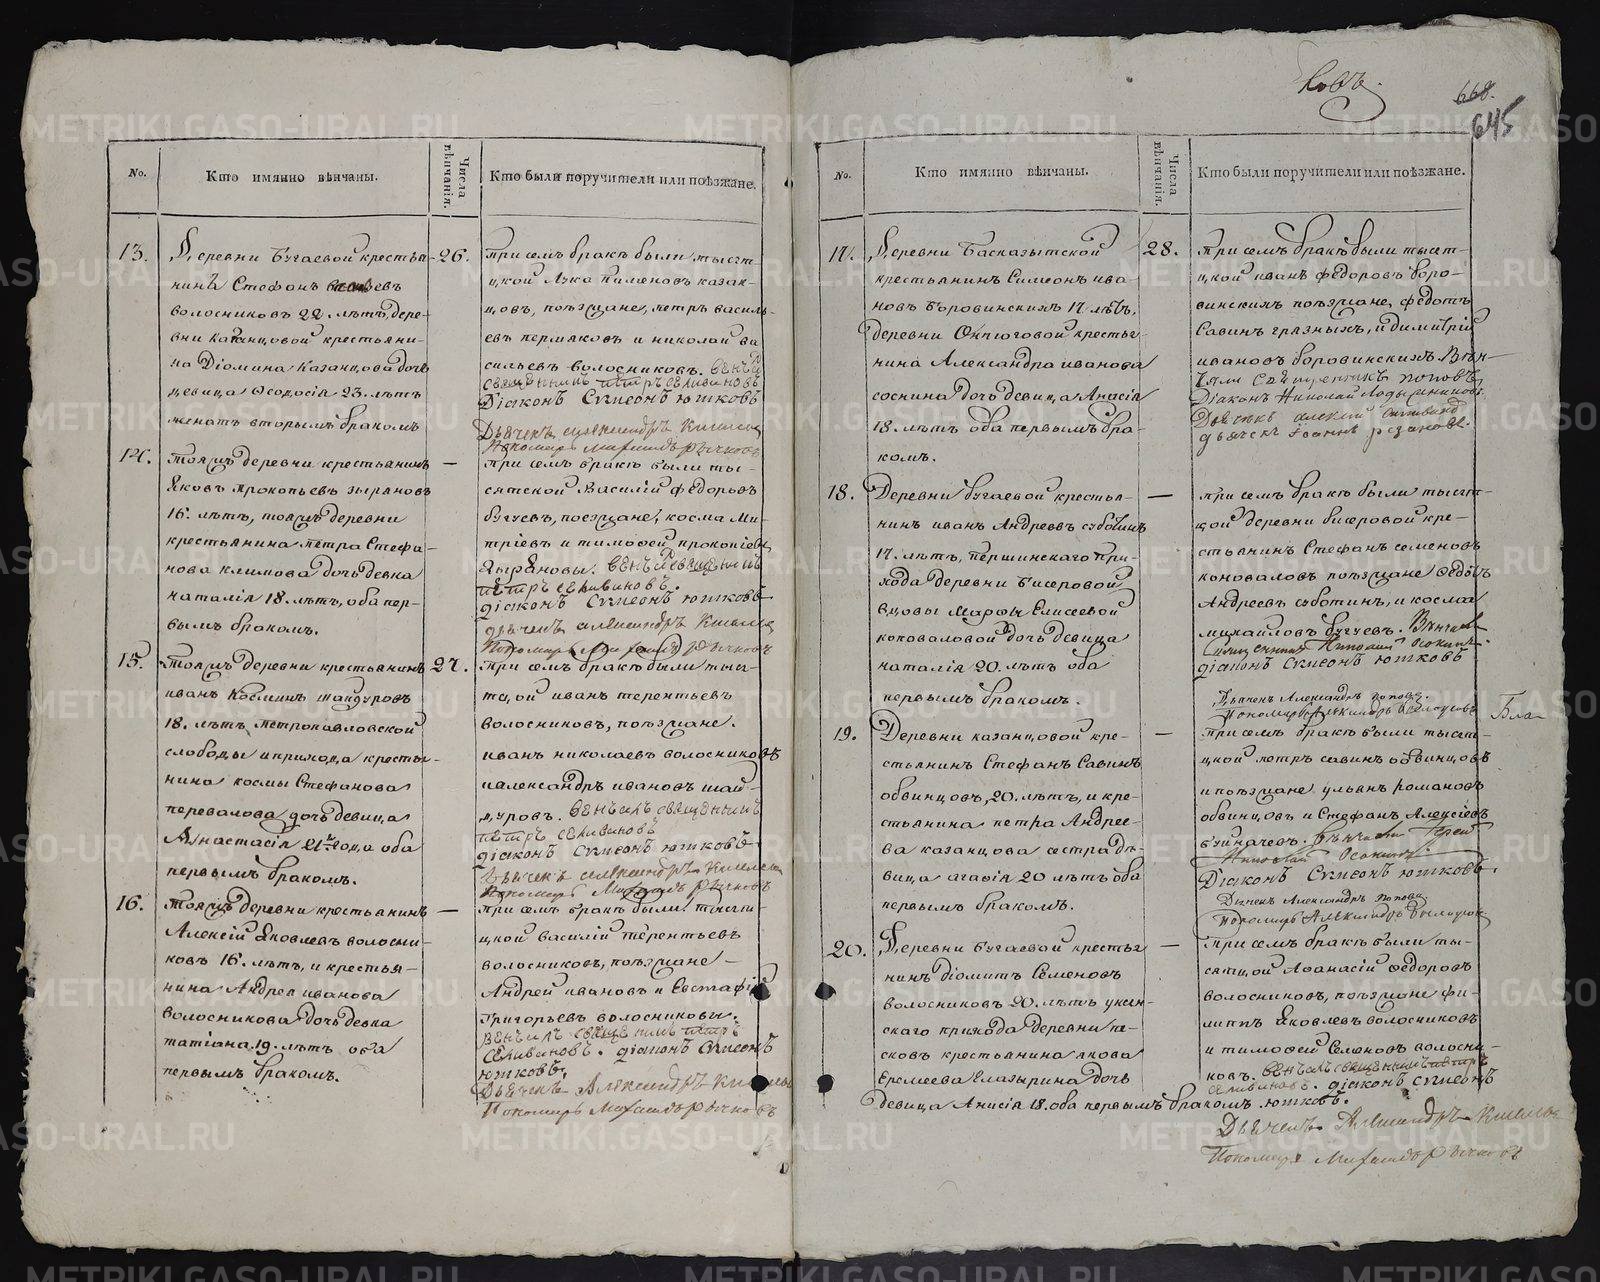 No.
Кто имянно вѣнчаны.
Числа вѣнчанія.
Кто были поручители или поѣзжане.
13.
Деревни Бугаевой крестья-
нинъ Стефанъ
волосниковъ 22. лѣтъ, дере-
вни Казанцовой крестьяни-
на Діомида Казанцова дочь
девица Ѳеодосія 23. лѣтъ
женатъ вторымъ бракомъ
26.
При семъ бракѣ были тысят-
цкой Лука Пименовъ казан-
цовъ, поѣзжане, петръ василь-
евъ пермяковъ и николай ва
сильевъ волосниковъ. венчалъ
священникъ петръ селивановъ
Діаконъ Сѵмеонъ Ютковъ
Дьячекъ александръ
Пономарь Михаилъ Рычковъ
14.
Тояжъ деревни крестьянинъ
Яковъ прокопьевъ зыряновъ
16. лѣтъ, тояжъ деревни
крестьянина петра Стефа-
нова климова дочь девка
наталія 18 лѣтъ, оба пер-
вымъ бракомъ.
—
При семъ бракѣ были ты-
сятской Василій федоровъ
бугуевъ, поезжане, косма Ми-
тріевъ и тимофей прокопіевы
Зыряновы. венчалъ священникъ
петръ селивановъ.
діаконъ Сѵмеонъ Ютковъ
дьячекъ александръ
Пономарь Михаилъ Рычковъ
15.
Тояжъ деревни крестьянинъ
иванъ Косминъ шайдуровъ
18. лѣтъ, петропавловской
слободы и прихода кресть-
нина космы Стефанова
перевалова дочь девица
Анастасія 21 года оба
первымъ бракомъ.
27.
При семъ бракѣ были тыся
цкой иванъ терентьевъ
волосниковъ, поѣзжане.
иванъ николаевъ волосниковъ
иалександръ ивановъ шай-
дуровъ. венчалъ священникъ
петръ селивановъ
діаконъ Сѵмеонъ Ютковъ
Дьячекъ александръ
Пономарь Михаилъ Рычковъ
16.
Тояжъ деревни крестьянинъ
Алексій Яковлевъ волосни-
ковъ 16. лѣтъ, и крестья-
нина Андрея иванова
волосникова дочь девка
татіана 19. лѣтъ оба
первымъ бракомъ.
—
При семъ бракѣ были тысят-
цкой василій терентьевъ
волосниковъ, поѣзжане —
Андрей ивановъ и Евстафій
Григорьевъ волосниковы.
венчалъ священникъ петръ
Селивановъ. діаконъ Сѵмеонъ
Ютковъ.
Дьячекъ Александръ
Пономарь Михаилъ Рычковъ
ковъ.
668.
645
No.
Кто имянно вѣнчаны.
Числа вѣнчанія.
Кто были поручители или поѣзжане.
17.
Деревни
крестьянинъ Симеонъ ива
новъ боровинскихъ 17 лѣтъ,
деревни крестья-
нина Александра иванова
соснина дочь девица Анисія
18. лѣтъ оба первымъ бра-
комъ.
28.
При семъ бракѣ были тысят-
цкой иванъ федоровъ боро-
винскихъ поѣзжане, федотъ
Савинъ грязныхъ, и димитрій
ивановъ боровинскихъ Вѣн-
чали Священникъ поповъ
Діаконъ Николай
дьячекъ Іоаннъ
18.
Деревни бугаевой крестья-
нинъ иванъ Андреевъ суботинъ
17. лѣтъ, першинскаго при-
хода деревни бисеровой
вдовы Марфы Елисеевой
коноваловой дочь девица
наталія 20. лѣтъ оба
первымъ бракомъ.
—
При семъ бракѣ были тысят-
цкой деревни бисеровой кре-
стьянинъ Стефанъ семеновъ
коноваловъ поѣзжане федоръ
Андреевъ суботинъ, и косма
михайловъ бугуевъ. Вѣнчалъ
священникъ Николай Осокинъ
діаконъ Сѵмеонъ Ютковъ
Дьячекъ Александръ поповъ.
Пономарь Александръ
Бла-
19.
Деревни казанцовой кре-
стьянинъ Стефанъ Савинъ
обвинцовъ, 20. лѣтъ, и кре-
стьянина петра Андрее-
ва казанцова сестра дѣ-
вица агафія 20 лѣтъ оба
первымъ бракомъ.
—
При семъ бракѣ были тысят-
цкой петръ савинъ обвинцовъ
и поѣзжане ульянъ романовъ
обвинцовъ и Стефанъ Алексіевъ
вѣнчалъ Іерей
Николай Осокинъ
Діаконъ Сѵмеонъ Ютковъ.
Дьячекъ Александръ поповъ
Пономарь Александръ
20.
Деревни Бугаевой крестья
нинъ діомитъ Семеновъ
волосниковъ 20. лѣтъ уксян-
скаго прихода деревни пе-
сковъ крестьянина якова
Еремеева Глазырина дочь
девица Анисія 18. оба первымъ бракомъ.
—
При семъ бракѣ были ты-
сятцой Афанасій федоровъ
волосниковъ, поѣзжане фи-
липпъ Яковлевъ волосниковъ
и тимофей Семеновъ волосни-
ковъ. венчалъ священникъ петръ
селивановъ. діаконъ Сѵмеонъ
Ютковъ.
Дьячекъ Александръ
Пономарь Михаилъ Рычковъ
METRIKI.GASO-URAL.RU